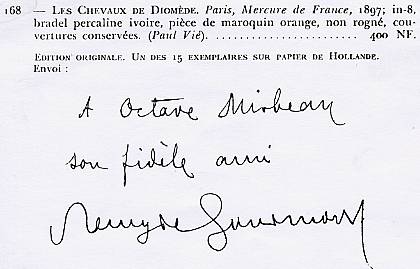 168 — LES CHEVAUX DE DIOMÈDE. Paris, Mercure de France, 1897; in-8,
bradel percaline ivoire, pièce de maroquin orange, non rogné, cou-
vertures conservées. (Paul Vié). ........................ 400 NF.
EDITION ORIGINALE. UN DES 15 EXEMPLAIRES SUR PAPIER DE HOLLANDE.
Envoi :
A Octave Mirbeau
son fidèle ami
Remy de Gourmont